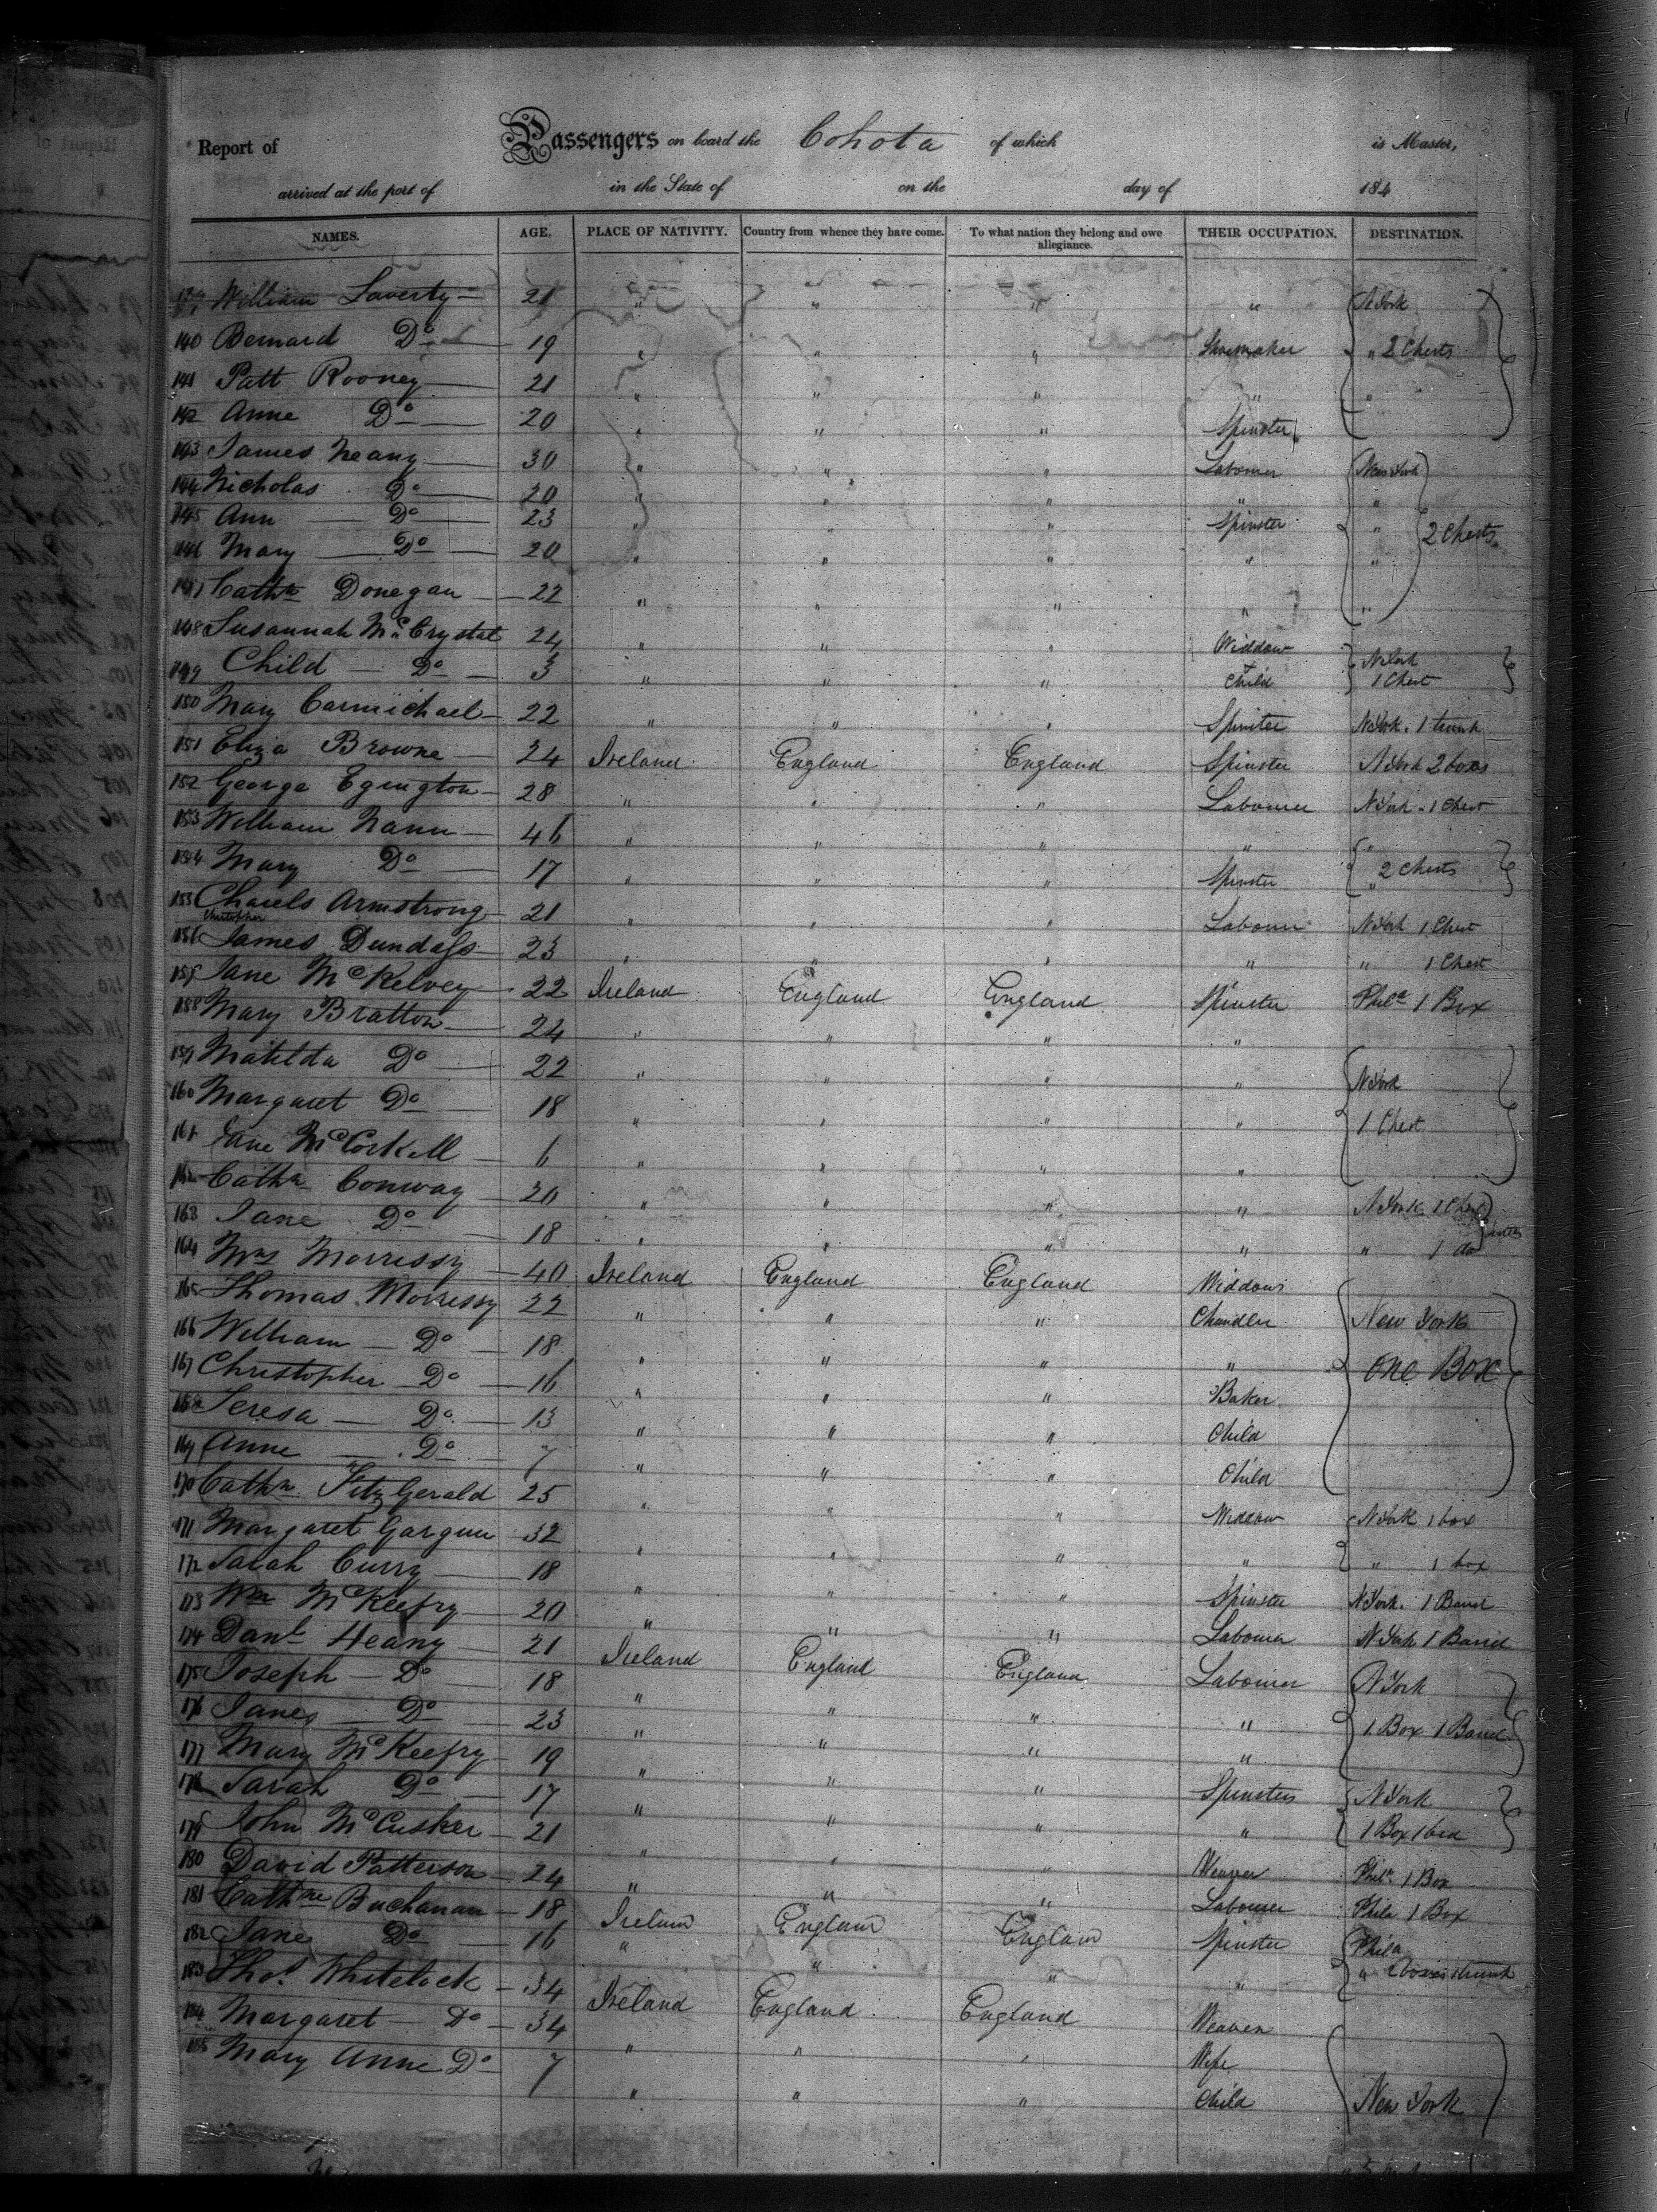 Report of Passengers on board the Cohota of which is Master,
arrived at the port of in the State of on the day of 184
NAMES. AGE. PLACE OF NATIVITY. Country from whence they have come. To what nation they belong and owe allegiance. THEIR OCCUPATION. DESTINATION.
139 William Laverty 21 " " " " N York
140 Bernard Do 19 " " " Shoemaker " 2 Chests
141 Patt Rooney 21 " " " " "
142 Anne Do 20 " " " Spinster
143 James Neany 30 " " " Labourer New York
144 Nicholas Do 20 " " " " "
145 Ann Do 23 " " " Spinster " 2 Chests
146 Mary Do 20 " " " " "
147 Cathn Donegan 22 " " " " "
148 Susannah McCrystal 24 " " " Widdow N York
149 Child Do 3 " " " Child 1 Chest
150 Mary Carmichael 22 " " " Spinster N York. 1 trunk
151 Eliza Browne 24 Ireland England England Spinster N York 2 boxs
152 George Egington 28 " " " Labourer N York. 1 Chest
153 William Nann 46 " " " " "
154 Mary Do 17 " " " Spinster " 2 Chests
155 Charels Armstrong 21 " " " Labourer N York 1 Chest
Christopher
156 James Dundass 23 " " " " " 1 Chest
157 Jane McKelvey 22 Ireland England England Spinster Phila 1 Box
158 Mary Bratton 24 " " " "
159 Matilda Do 22 " " " " N York
160 Margaret Do 18 " " " " 1 Chest
161 Jane McCorkell 6 " " " "
162 Cathn Conway 20 " " " " N York 1 Chest
163 Jane Do 18 " " " " " 1 do
164 Mrs Morrissy 40 Ireland England England Widdow
165 Thomas Morressy 22 " " " Chandler New York
166 William Do 18 " " " " One Box
167 Christopher Do 16 " " " Baker
168 Teresa Do 13 " " " Child
169 Anne Do 7 " " " Child
170 Cathn FitzGerald 25 " " " Widdow N York 1 box
171 Margaret Gargun 32 " " " " " 1 box
172 Sarah Curry 18 " " " Spinster N York. 1 Barrel
173 Wm McKeefry 20 " " " Labourer N York 1 Barrel
174 Danl Heany 21 Ireland England England Labourer N York
175 Joseph Do 18 " " " " 1 Box 1 Barrel
176 James Do 23 " " " "
177 Mary McKeefry 19 " " " Spinsters N York
178 Sarah Do 17 " " " " 1 Box 1 bed
179 John McCusker 21 " " " Weaver Phila 1 Box
180 David Patterson 24 " " " Labourer Phila 1 Box
181 Cathne Buchanan 18 Ireland England England Spinster Phila
182 Jane Do 16 " " " " " 2 boxes 1 trunk
183 Thos. Whitelock 34 Ireland England England Weaver
184 Margaret Do 34 " " " Wife
185 Mary Anne Do 7 " " " Child New York